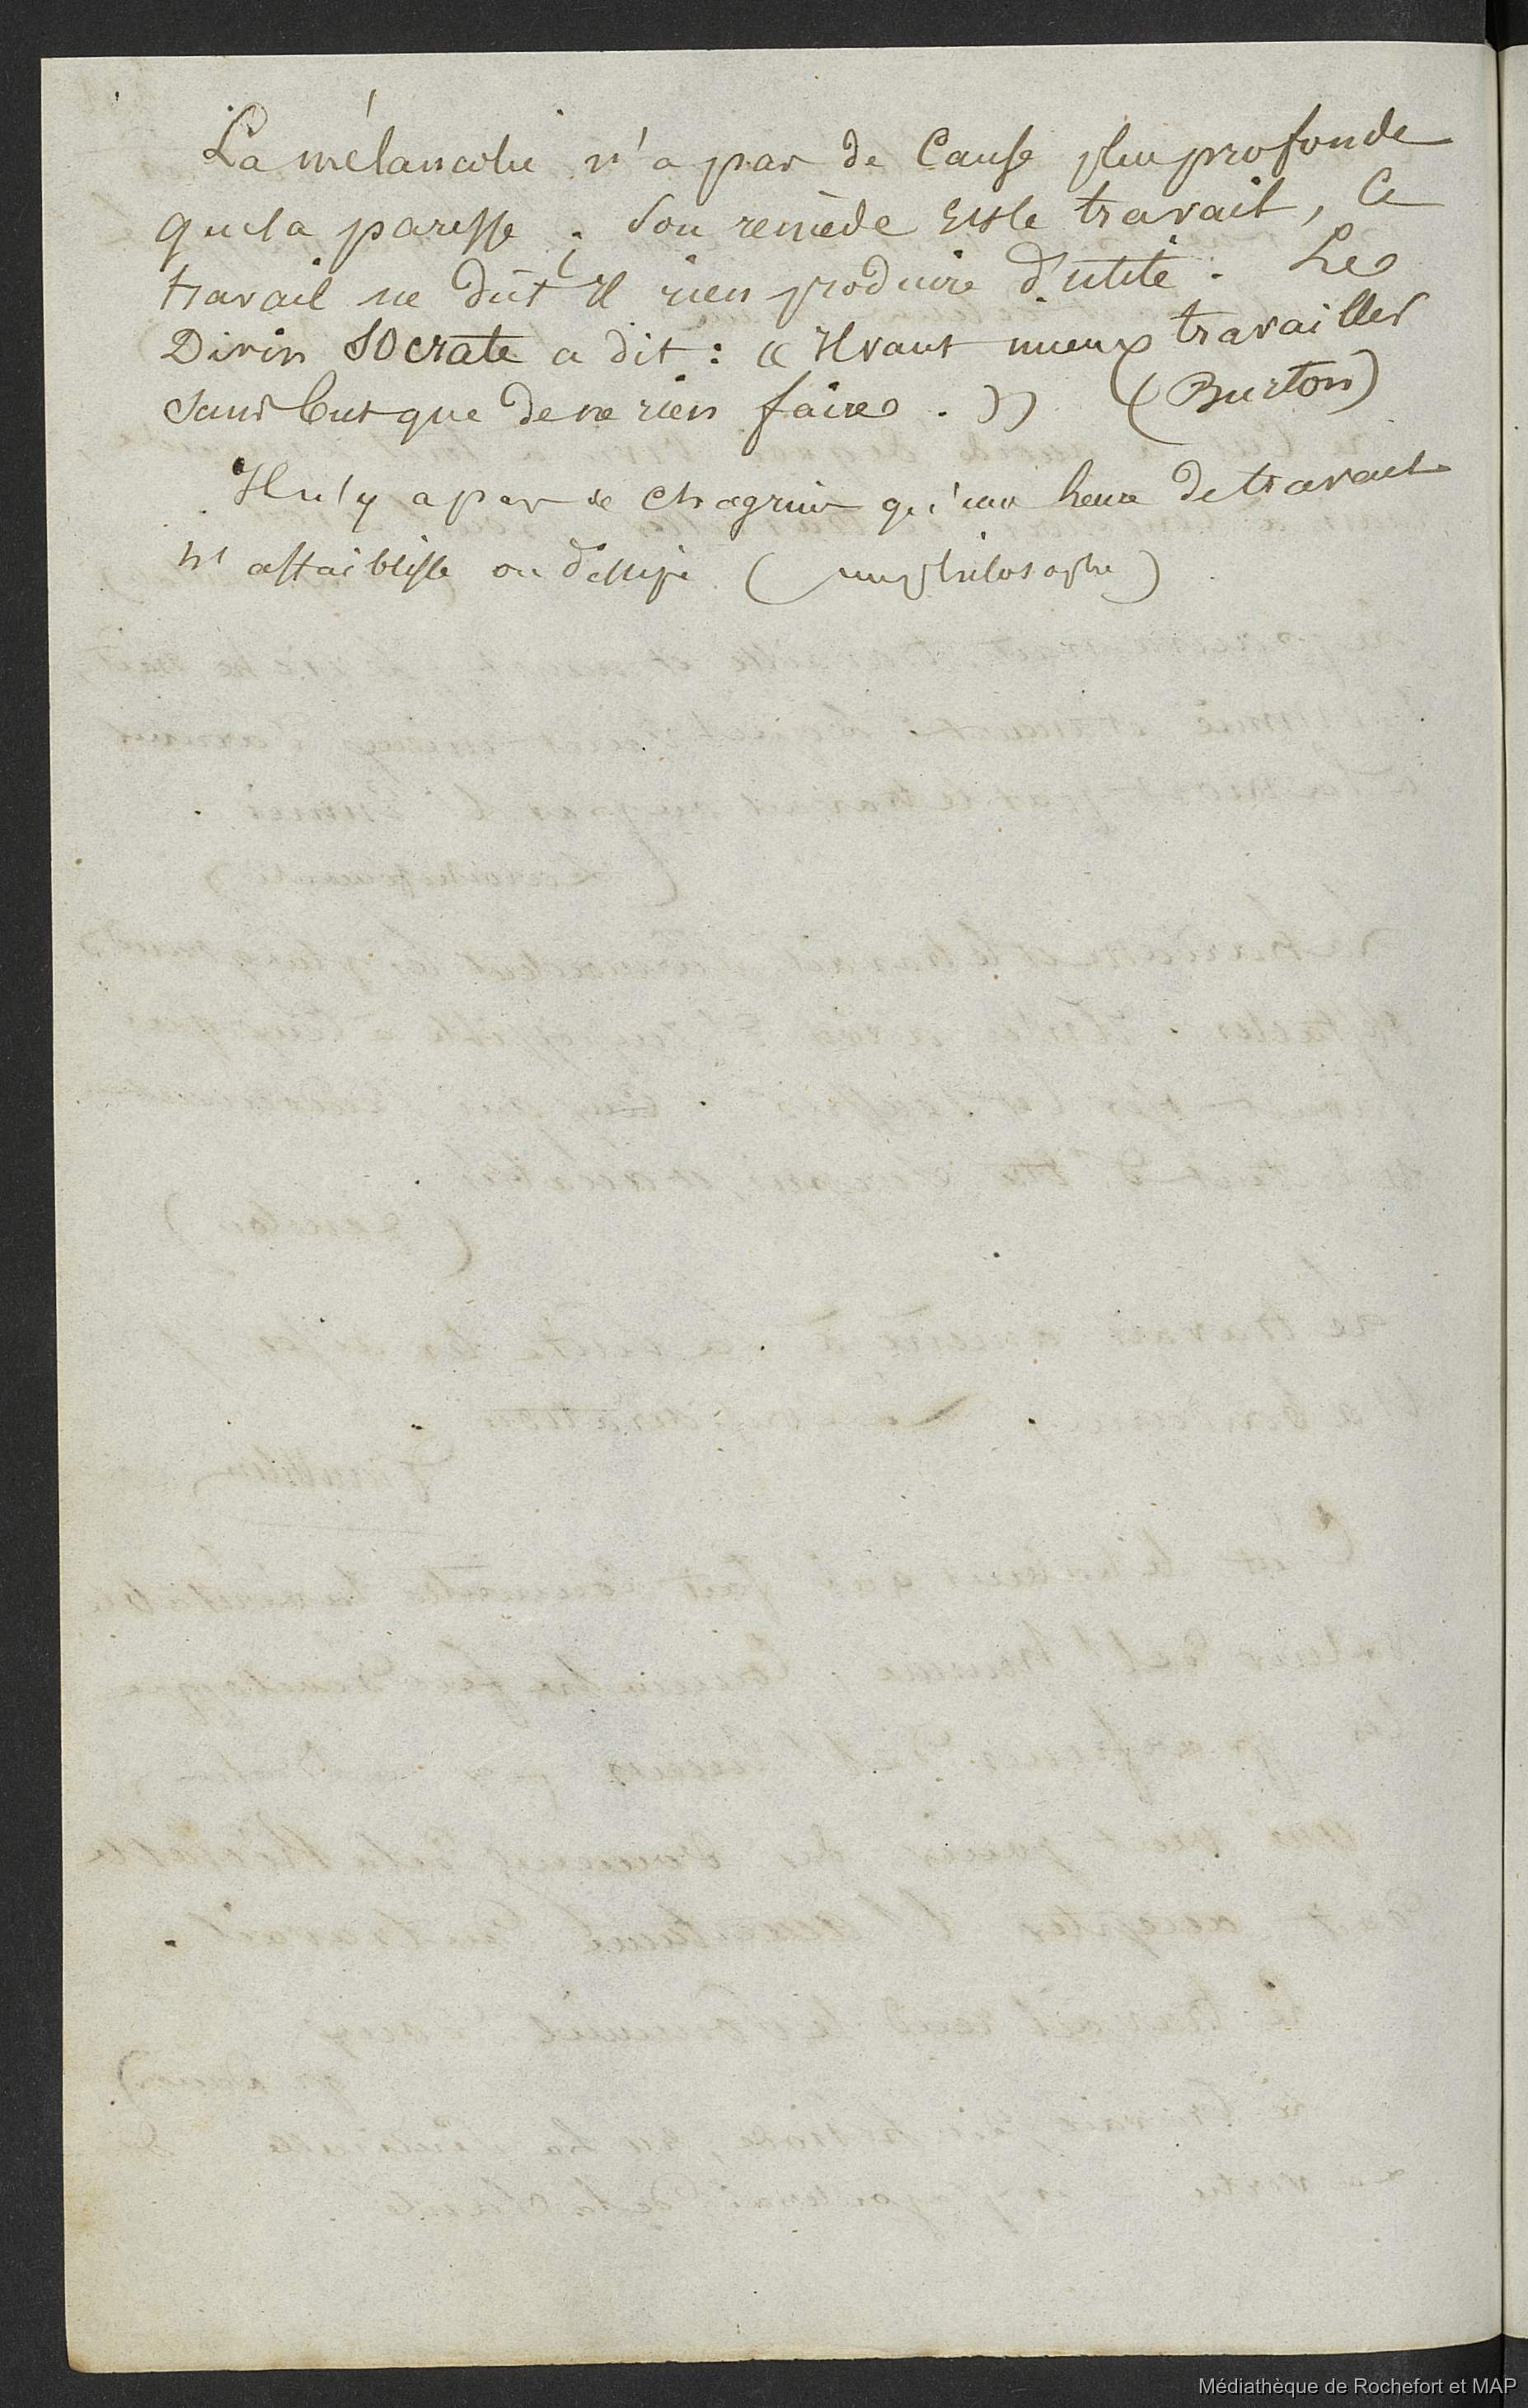 La mélancolie n'a pas de Cause plus profonde
que la paresse ; son remède Est le travail, Ce
travail ne dût Il rien produire d'utile. Le
Divin Socrate a dit : « Il vaut mieux travailler
sans but que de ne rien faire. » (Burton)
Il n'y a pas de chagrin qu'une heure de travail
n'affaiblisse ou dissipe (un philosophe)
Médiathèque de Rochefort et MAP